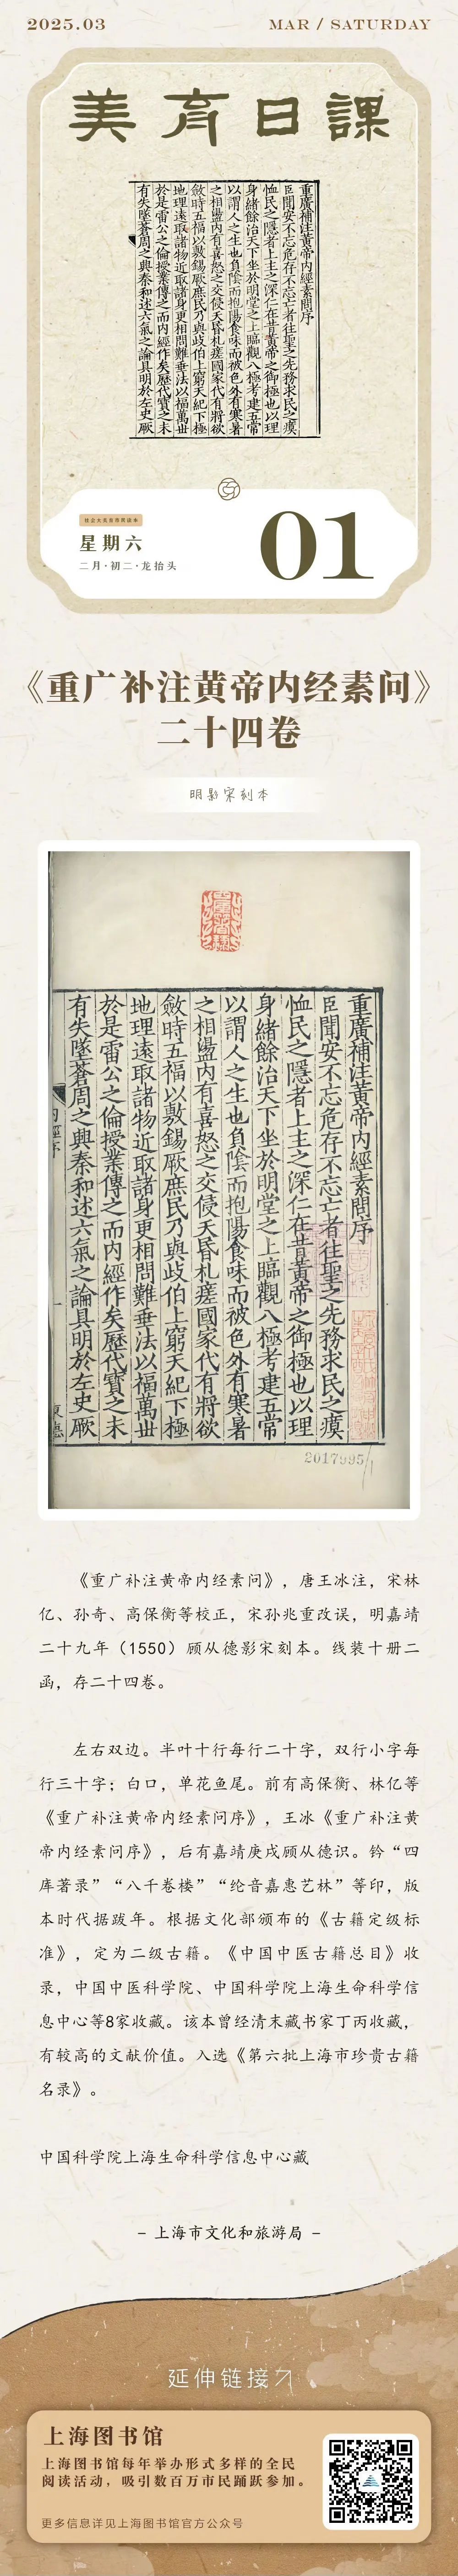 2025.03
MAR / SATURDAY
美育日課
重廣補注黃帝内經素問序
臣聞安不忘危存不忘亡者往聖之先務求民之瘼
恤民之隱者上主之深仁在昔黃帝之御極也以理
身緒餘治天下坐於明堂之上臨觀八極考建五常
以謂人之生也負陰而抱陽食味而被色外有寒暑
之相盪内有喜怒之交侵夭昏札瘥國家代有將欲
斂時五福以敷錫厥庶民乃與歧伯上窮天紀下極
地理遠取諸物近取諸身更相問難垂法以福萬世
於是雷公之倫授業傳之而内經作矣歷代寶之未
有失墜蒼周之興秦和述六氣之論具明於左史厥
社会大美育市民读本
星期六
二月·初二·龙抬头
01
《重广补注黄帝内经素问》
二十四卷
明影宋刻本
重廣補注黃帝内經素問序
臣聞安不忘危存不忘亡者往聖之先務求民之瘼
恤民之隱者上主之深仁在昔黃帝之御極也以理
身緒餘治天下坐於明堂之上臨觀八極考建五常
以謂人之生也負陰而抱陽食味而被色外有寒暑
之相盪内有喜怒之交侵夭昏札瘥國家代有將欲
斂時五福以敷錫厥庶民乃與歧伯上窮天紀下極
地理遠取諸物近取諸身更相問難垂法以福萬世
於是雷公之倫授業傳之而内經作矣歷代寶之未
有失墜蒼周之興秦和述六氣之論具明於左史厥
2017995
《重广补注黄帝内经素问》，唐王冰注，宋林
亿、孙奇、高保衡等校正，宋孙兆重改误，明嘉靖
二十九年（1550）顾从德影宋刻本。线装十册二
函，存二十四卷。
左右双边。半叶十行每行二十字，双行小字每
行三十字；白口，单花鱼尾。前有高保衡、林亿等
《重广补注黄帝内经素问序》，王冰《重广补注黄
帝内经素问序》，后有嘉靖庚戌顾从德识。钤“四
库著录”“八千卷楼”“纶音嘉惠艺林”等印，版
本时代据跋年。根据文化部颁布的《古籍定级标
准》，定为二级古籍。《中国中医古籍总目》收
录，中国中医科学院、中国科学院上海生命科学信
息中心等8家收藏。该本曾经清末藏书家丁丙收藏，
有较高的文献价值。入选《第六批上海市珍贵古籍
名录》。
中国科学院上海生命科学信息中心藏
– 上海市文化和旅游局 –
延伸链接
上海图书馆
上海图书馆每年举办形式多样的全民
阅读活动，吸引数百万市民踊跃参加。
更多信息详见上海图书馆官方公众号